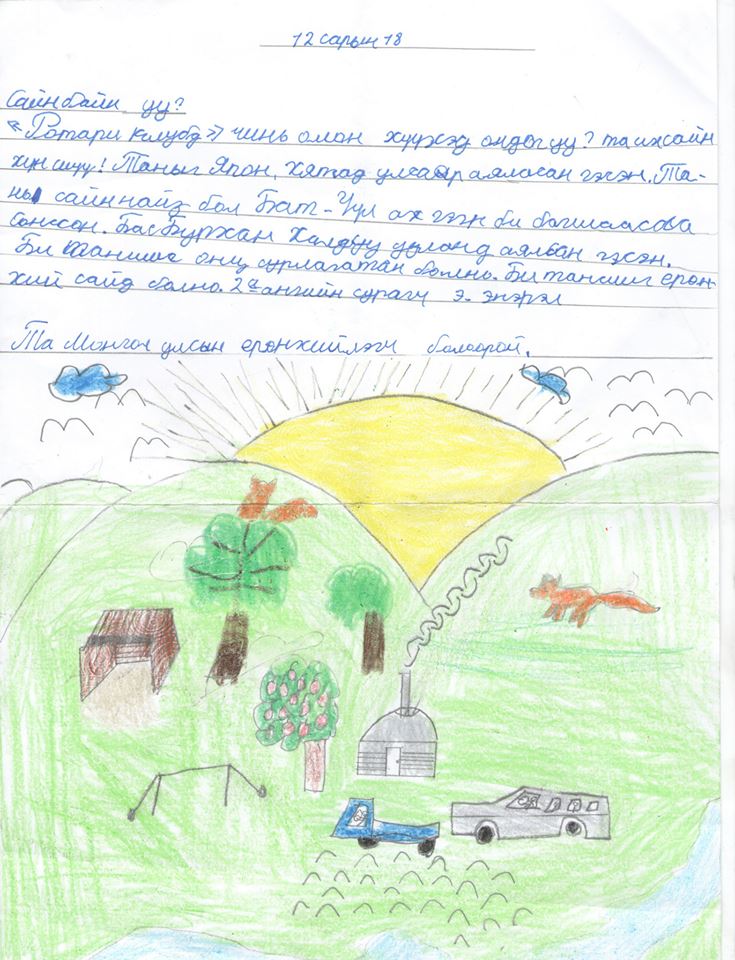 12 сарын 18
Сайн байн уу?
«Ротари клубд» чинь олон хүүхэд ондог уу? та их сайн
хүн шүү! Таныг Япон, Хятад улсаар аялсан гэсэн. Та-
ны сайн найз бол Бат-Уул ах гэж би багшаасаа
сонссон. Бас Бурхан Халдун ууланд аялсан гэсэн.
Би онц сурлагатан болно. Би тан шиг ерөн-
хий сайд болно. 2а ангийн сурагч Э. Энэрэл
Та Монгол улсын ерөнхийлөгч болоорой.